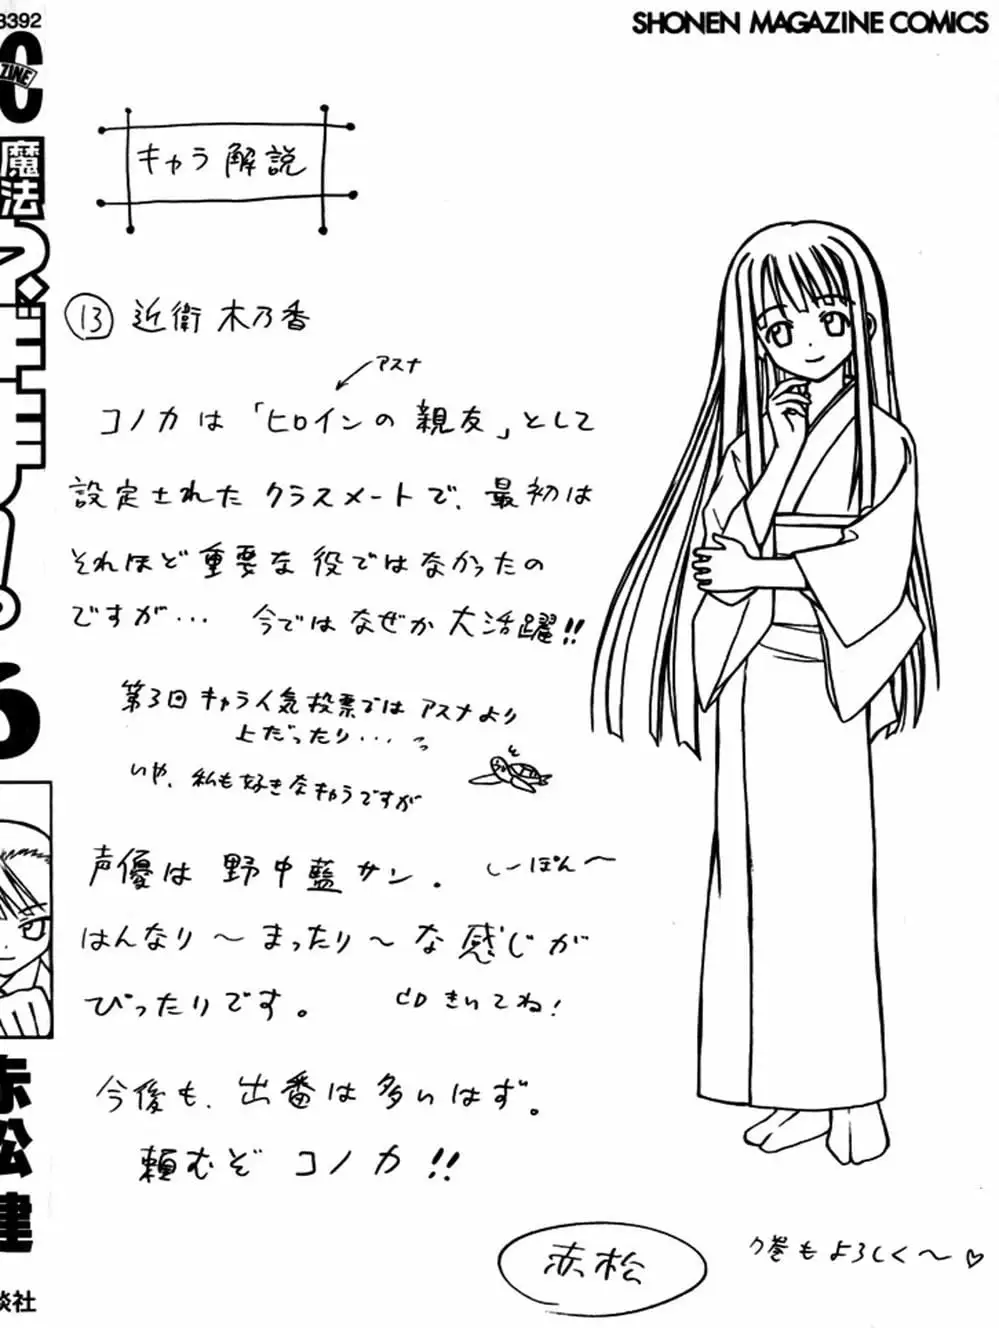 3392
SHONEN MAGAZINE COMICS
ZINE
魔法
ネギま!
6
赤松健
談社
キャラ解説
⑬ 近衛 木乃香
アスナ
コノカは「ヒロインの親友」として
設定された クラスメートで、最初は
それほど重要な役ではなかったの
ですが... 今ではなぜか大活躍!!
第3回キャラ人気投票ではアスナより
上だったり...
いや、私も好きなキャラですが
声優は 野中藍サン。
しーぽん〜
はんなり〜まったり〜な感じが
ぴったりです。 CDきいてね!
今後も、出番は多いはず。
頼むぞ コノカ!!
赤松
7巻もよろしく〜♡